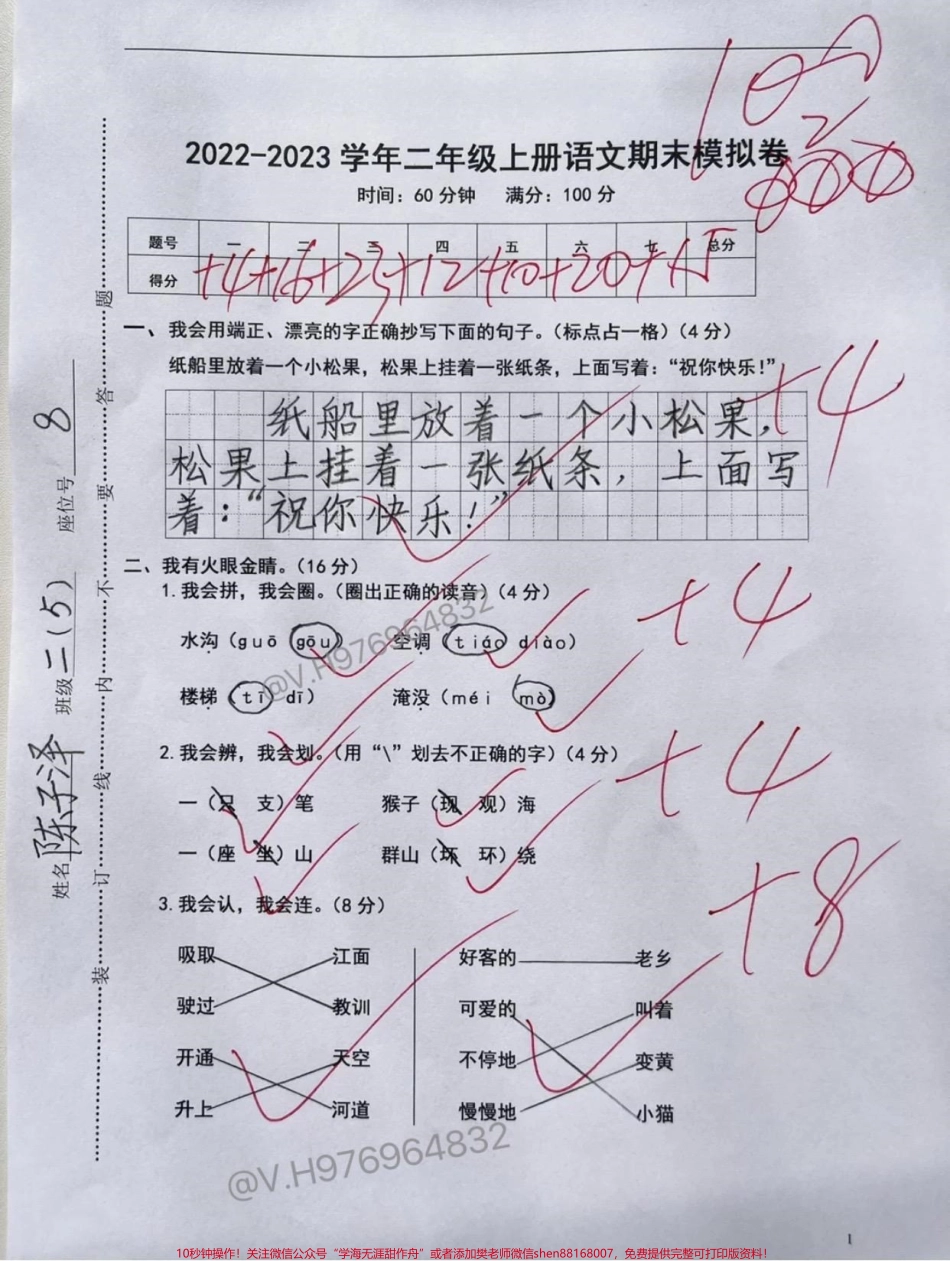 100分
2022-2023 学年二年级上册语文期末模拟卷
时间：60 分钟 满分：100 分
题号 一 二 三 四 五 六 七 总分
得分 +4 +16 +23 +12 +10 +20 +15
一、我会用端正、漂亮的字正确抄写下面的句子。（标点占一格）（4 分）
纸船里放着一个小松果，松果上挂着一张纸条，上面写着：“祝你快乐！”
+4
纸船里放着一个小松果，
松果上挂着一张纸条，上面写
着：“祝你快乐！”
二、我有火眼金睛。（16 分）
1.我会拼，我会圈。（圈出正确的读音）（4 分）
+4
水沟（guō gōu） 空调（tiáo diào）
楼梯（tī dī） 淹没（méi mò）
2.我会辨，我会划。（用“\”划去不正确的字）（4 分）
+4
一（只 支）笔 猴子（现 观）海
一（座 坐）山 群山（坏 环）绕
3.我会认，我会连。（8 分）
+8
吸取 江面 好客的 老乡
驶过 教训 可爱的 叫着
开通 天空 不停地 变黄
升上 河道 慢慢地 小猫
@V.H976964832
@V.H976964832
姓名 陈子泽 班级 二(5) 座位号 8
装 订 线 内 不 要 答 题
1
10秒钟操作！关注微信公众号“学海无涯甜作舟”或者添加樊老师微信shen88168007，免费提供完整可打印版资料！